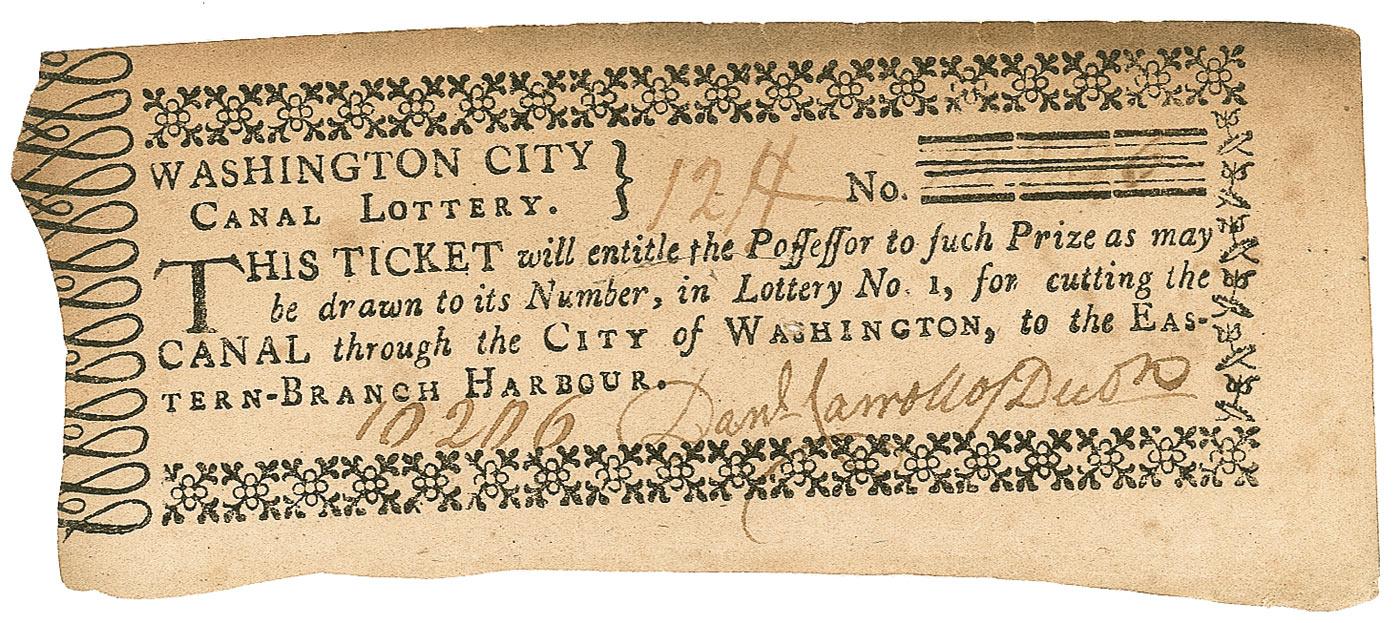 WASHINGTON CITY } 124 No.
CANAL LOTTERY.
THIS TICKET will entitle the Poſſeſſor to ſuch Prize as may
be drawn to its Number, in Lottery No. 1, for cutting the
CANAL through the CITY of WASHINGTON, to the EAS-
TERN-BRANCH HARBOUR.
10206 Danl Carroll of Dudn